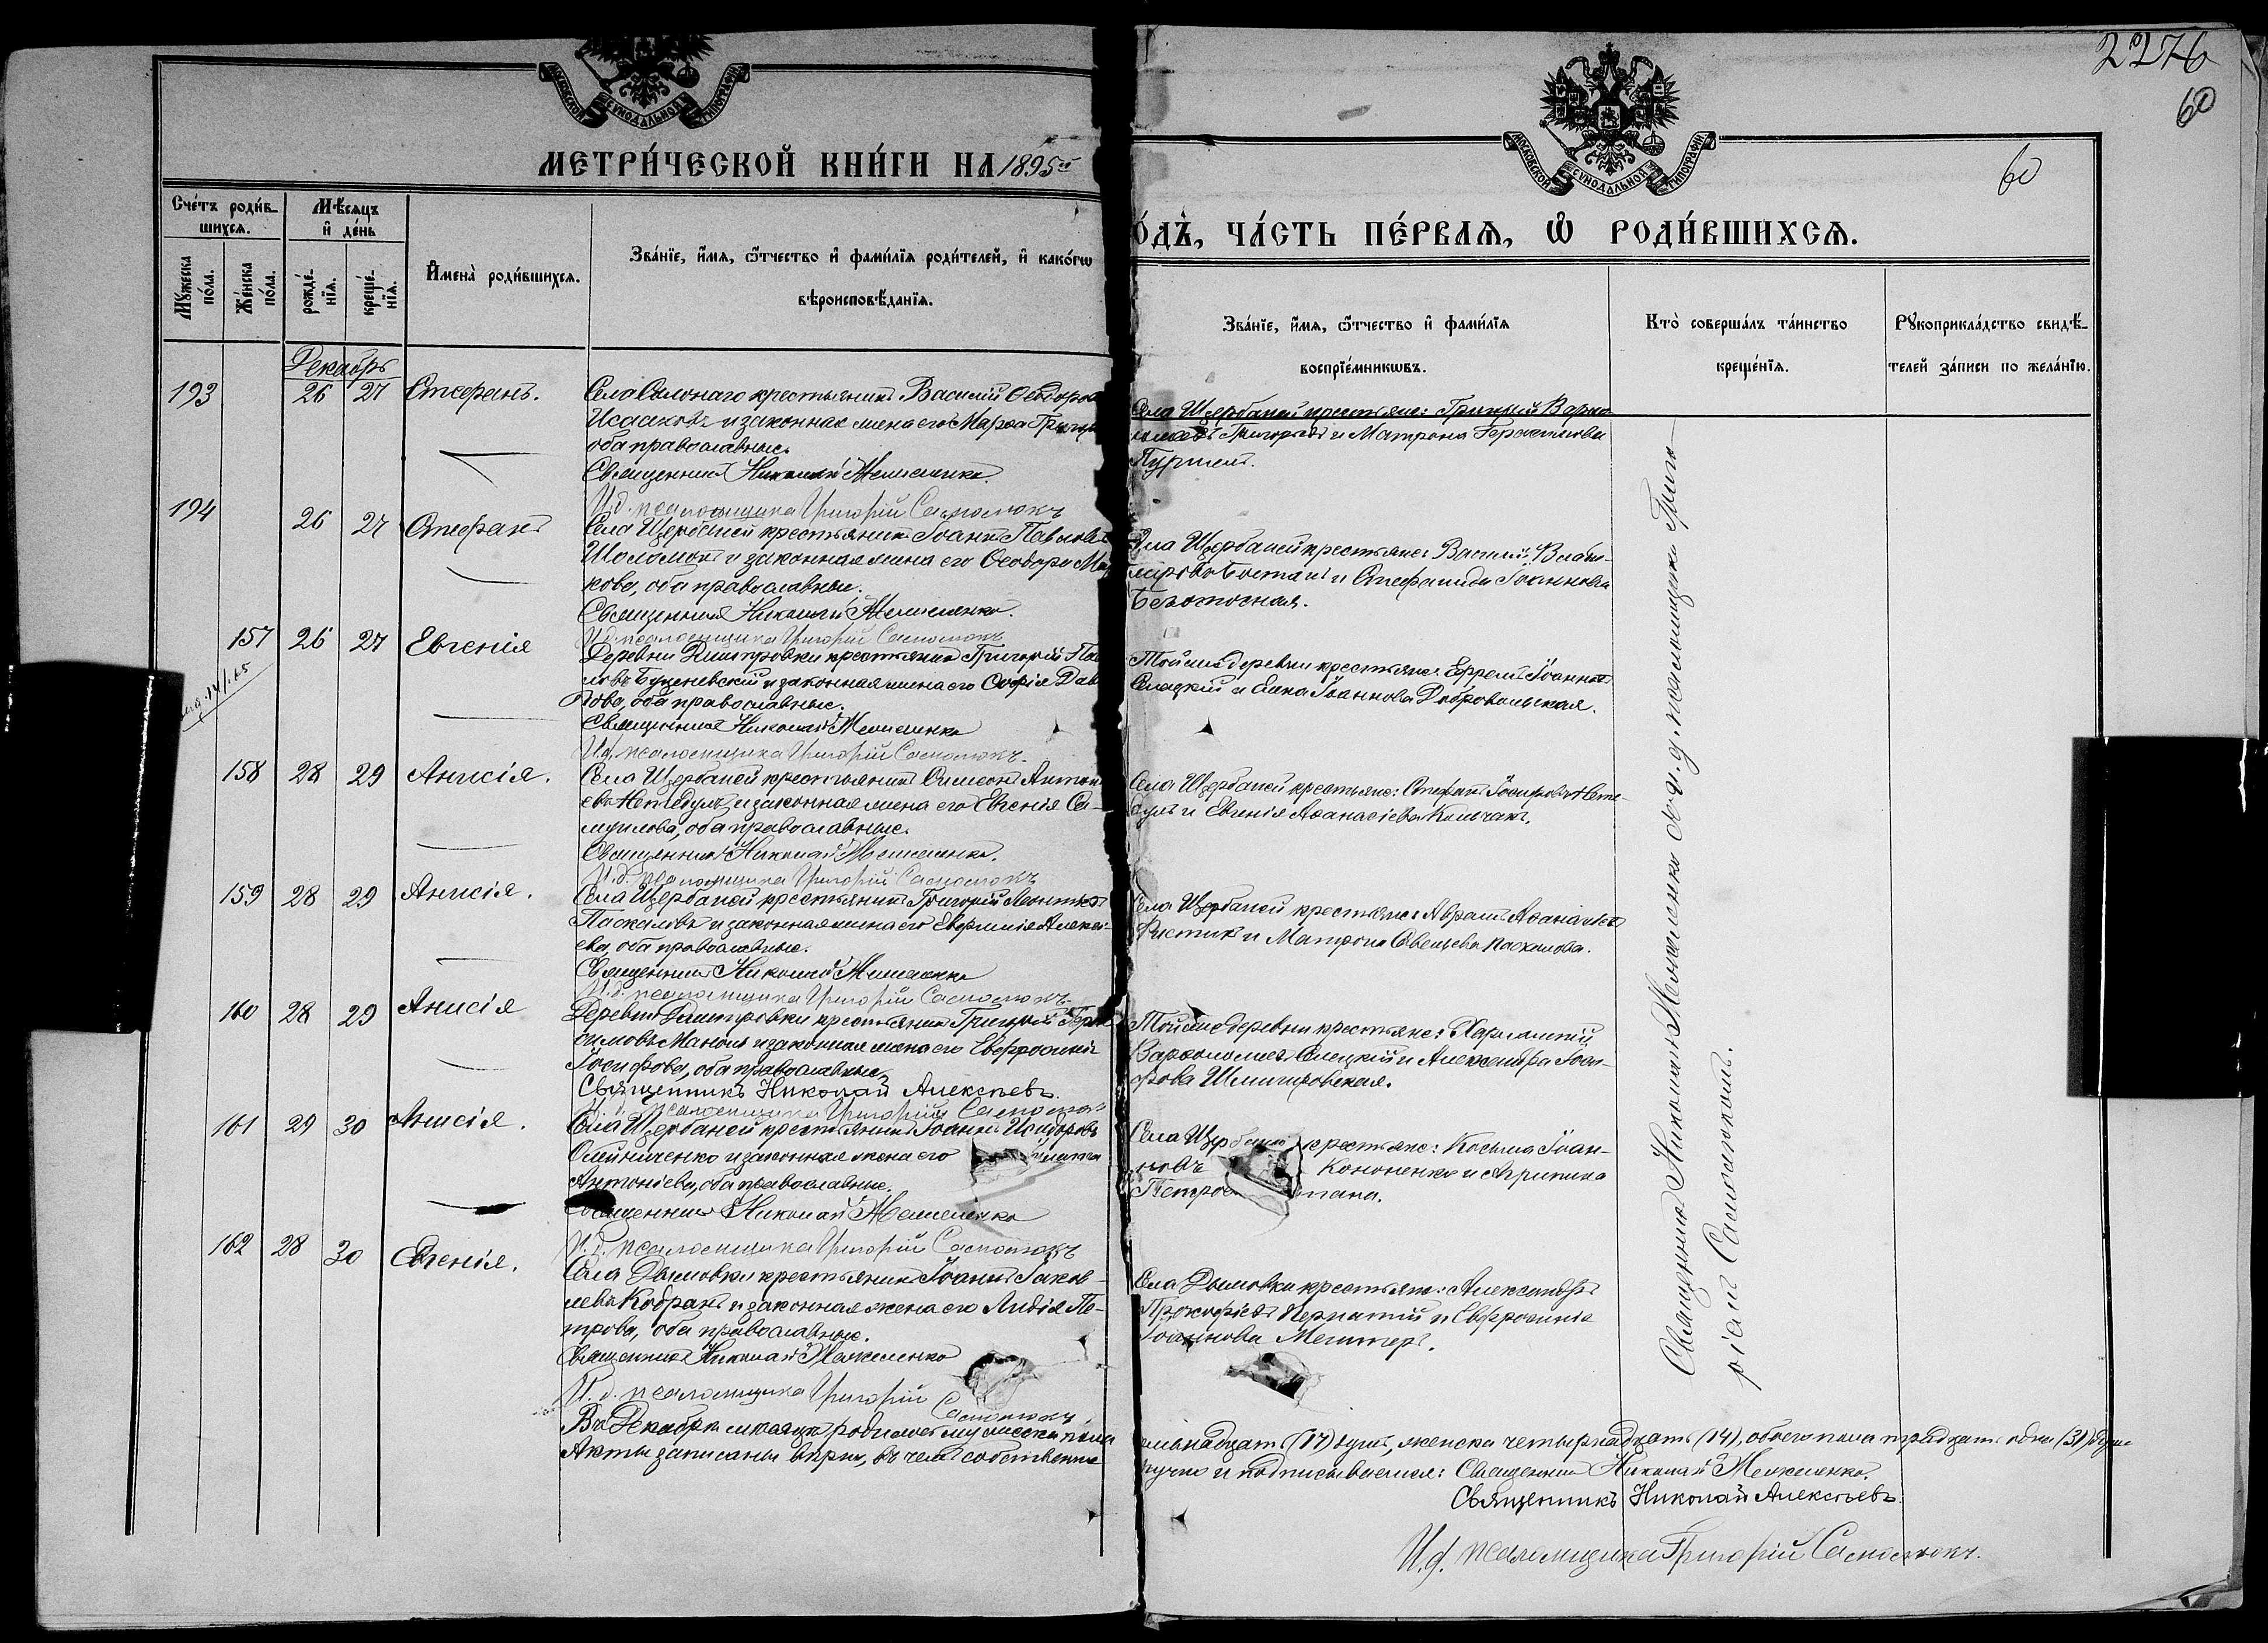 2276
60
60
МЕТРИ́ЧЕСКОЙ КНИ́ГИ НА 1895й
О́ДЪ, ЧА́СТЬ ПЕ́РВАЯ, Ѡ РОДИ́ВШИХСЯ.
МОСКОВСКОЙ СѴНОДАЛЬНОЙ ТИПОГРАФІИ
МОСКОВСКОЙ СѴНОДАЛЬНОЙ ТИПОГРАФІИ
Сче́тъ роди́в-
шихся.
Мѣ́сяцъ
и҆ де́нь
Мꙋ́жеска
по́ла.
Же́нска
по́ла.
рожде́-
нїя.
креще́-
нїя.
И҆мена̀ роди́вшихся.
Зва́нїе, и҆́мя, ѻ҆́тчество и҆ фами́лїя роди́телей, и҆ како́гѡ
вѣроисповѣ́данїя.
Зва́нїе, и҆́мя, ѻ҆́тчество и҆ фами́лїя
воспрїе́мникѡвъ.
Кто̀ соверша́лъ та́инство
креще́нїя.
Рꙋкоприкла́дство свидѣ́-
телей за́писи по жела́нїю.
Декабрь
193 26 27 Стефанъ.
крестьянинъ Василій Ѳеодоров
Исааковъ и законная жена его Марѳа Григор
оба православные.
Священникъ Николай Мележенко
И.д. псаломщика Григорій Самотюкъ
Села Щербаней крестьяне: Григорій Варѳо-
ломеевъ Григорьевъ и Матрона Герасимова
194 26 27 Стефанъ
Села Щербаней крестьянинъ Іоаннъ Павловъ
Шоломонъ и законная жена его Ѳеодора
кова, оба православные.
Священникъ Николай Мележенко.
И.д. псаломщика Григорій Самотюкъ
Села Щербаней крестьяне: Василій Влади-
міровъ и Стефанида Іоаннова
Безотосная.
157 26 27 Евгенія
Деревни Димитровки крестьянинъ Григорій Пав
ловъ Буженевскій и законная жена его Софія Дави
дова, оба православные.
Священникъ Николай Мележенко
И.д. псаломщика Григорій Самотюкъ.
Той же деревни крестьяне: Ефремъ Іоанновъ
Слецкій и Анна Іоаннова Добровольская.
158 28 29 Анисія.
Села Щербаней крестьянинъ Симеонъ Антонi
евъ Нетедулъ и законная жена его Евгенія Са-
муилова, оба православные.
Священникъ Николай Мележенко.
И.д. псаломщика Григорій Самотюкъ
Села Щербаней крестьяне: Стефанъ Іосифовъ Нете-
дулъ и Евгенія Аѳанасіева Колчакъ.
159 28 29 Анисія.
Села Щербаней крестьянинъ Григорій Леонтьев
Паскаловъ и законная жена его Евфимія Алексі-
ева, оба православные.
Священникъ Николай Мележенко
И.д. псаломщика Григорій Самотюкъ
Села Щербаней крестьяне: Авраамъ Аѳанасіевъ
Фистикъ и Матрона Паскалова.
160 28 29 Анисія
Деревни Димитровки крестьянинъ Григорій Гера
симовъ Маноль и законная жена его Евфросинія
Іосифова, оба православные.
Священникъ Николай Алексѣевъ.
И.д. псаломщика Григорій Самотюкъ
Той же деревни крестьяне: Харлампій
Варѳоломеевъ Слецкій и Александра Іоси-
фова Шлигировская.
161 29 30 Анисія.
Села Щербаней крестьянинъ Іоаннъ Исидоровъ
Олейниченко и законная жена его
Антоніева, оба православные.
Священникъ Николай Мележенко
И.д. псаломщика Григорій Самотюкъ
Села Щербаней крестьяне: Косьма Іоан-
новъ Кононенко и Агрипина
162 28 30 Евгенія.
Села Дымовки крестьянинъ Іоаннъ Іаков-
левъ Кобранъ и законная жена его Лидія Пе-
трова, оба православные.
Священникъ Николай Мележенко
И.д. псаломщика Григорій Самотюкъ.
Села Дымовки крестьяне: Александръ
Прокофіевъ Пернатій и Евфросинія
Іоаннова Мегитеръ.
Священникъ Николай Мележенко съ и.д. псаломщика Григо-
ріемъ Самотюкомъ.
Въ Декабрѣ мѣсяцѣ родилось мужеска пола
емьнадцать (17) душъ, женска четырнадцать (14), обоего пола тридцать одна (31) душа
Акты записаны вѣрно, въ чемъ собственно
ручно и подписываемся: Священникъ Николай Мележенко.
Священникъ Николай Алексѣевъ.
И.д. псаломщика Григорій Самотюкъ.